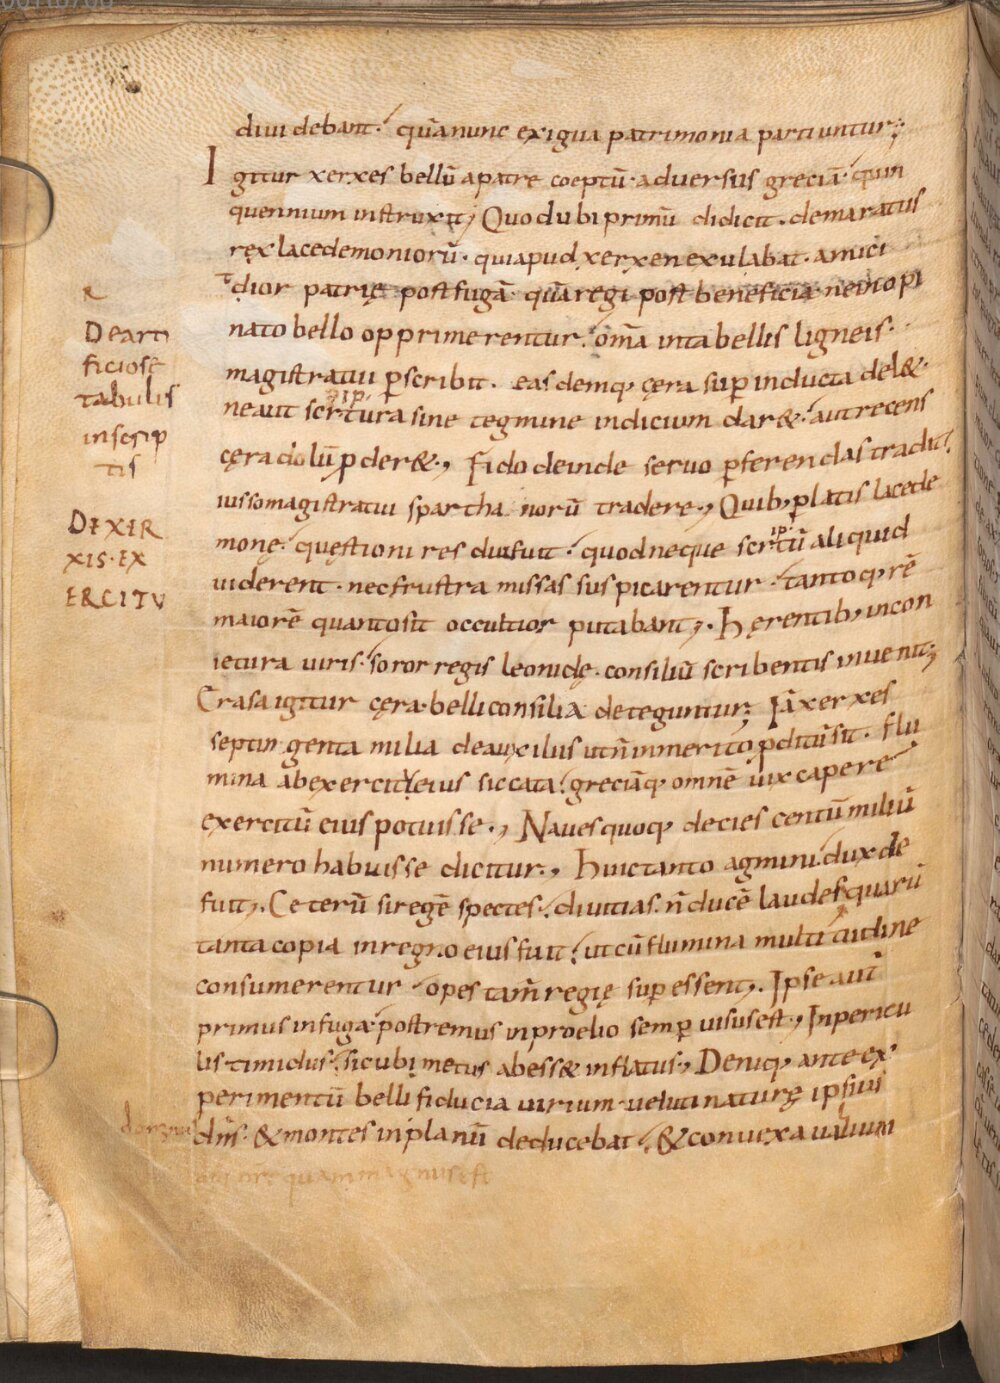 diuidebant. quā nunc exigua patrimonia partiuntur;
Igitur xerxes bellū apatre coeptū. aduersus greciā. quin
quennium instruxit; Quod ubi primū didicit. demaratus
rex lacedemoniorū. qui apud xerxen exulabat. amici
dior patrię post fugā. quā regi post beneficia. ne inopi
nato bello opprimerentur. om̄a in tabellis ligneis.
magistratui pscribit. easdemq; cęra sup inducta del&.
ne aut scrtura sine tegmine indicium dar&. aut recens
scrip
cęra dolū pder&; Fido deinde seruo pferendas tradit.
iusso magistratui sparthanorū tradere; Quib; platis lacede
monę. quęstioni res diu fuit. quod neque scrtū aliquid
ip
uiderent. nec frustra missas suspicarentur. tantoq; rē
maiorē quanto sit occultior putabant; Hęrentib; in con
iectura uiris. soror regis leonidę. consiliū scribentis inuenit;
Crasa igitur cęra. belli consilia deteguntur; Iā xerxes
septingenta milia de auxiliis ut n̄ inmerito pditū sit. flu
mina ab exercitu eius siccata. greciāq; omnē uix capere
exercitū eius potuisse; Naues quoq; decies centū miliū
numero habuisse dicitur; Huic tanto agmini. dux de
fuit; Ceterū si regē spectes. diuitias. n̄ ducē laudes. quarū
tanta copia in regno eius fuit. ut cū flumina multitudine
consumerentur. opes tam̄ regię sup essent; Ipse aut̄
primus in fuga. postremus in proelio semp uisus est; In pericu
lis timidus. sicubi metus abess& inflatus; Deniq; ante ex
perimentū belli fiducia uirium. ueluti naturę ipsius
dn̄s. & montes in planū deducebat. & conuexa uallium
quam magnus est
De arti
ficiose
tabulis
inscrip
tis
DE XER
XIS. EX
ERCITU